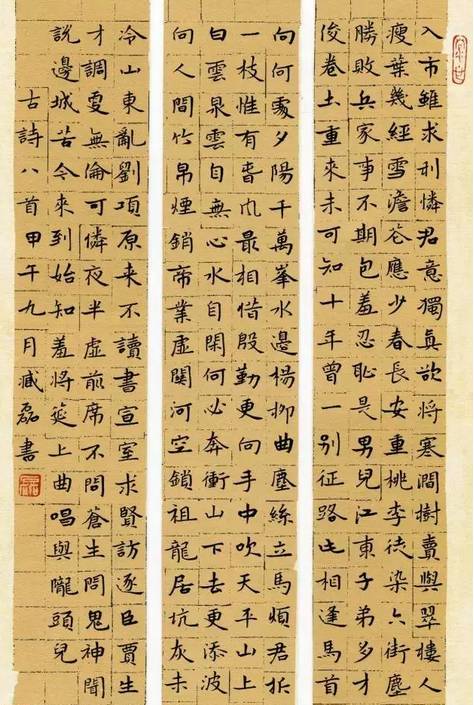 入市雖求利憐君意獨真欲將寒澗樹賣與翠樓人
瘦葉幾經雪澹花應少春長安重桃李徒染六街塵
勝敗兵家事不期包羞忍恥是男兒江東子弟多才
俊卷土重來未可知十年曾一別征路此相逢馬首
向何處夕陽千萬峯水邊楊柳曲塵絲立馬煩君折
一枝惟有春風最相惜殷勤更向手中吹天平山上
白雲泉雲自無心水自閑何必奔衝山下去更添波
向人間竹帛煙銷帝業虛關河空鎖祖龍居坑灰未
冷山東亂劉項原来不讀書宣室求賢訪逐臣賈生
才調更無倫可憐夜半虛前席不問蒼生問鬼神聞
說邊城苦今來到始知羞將筵上曲唱與隴頭兒
古詩八首甲午九月臧磊書